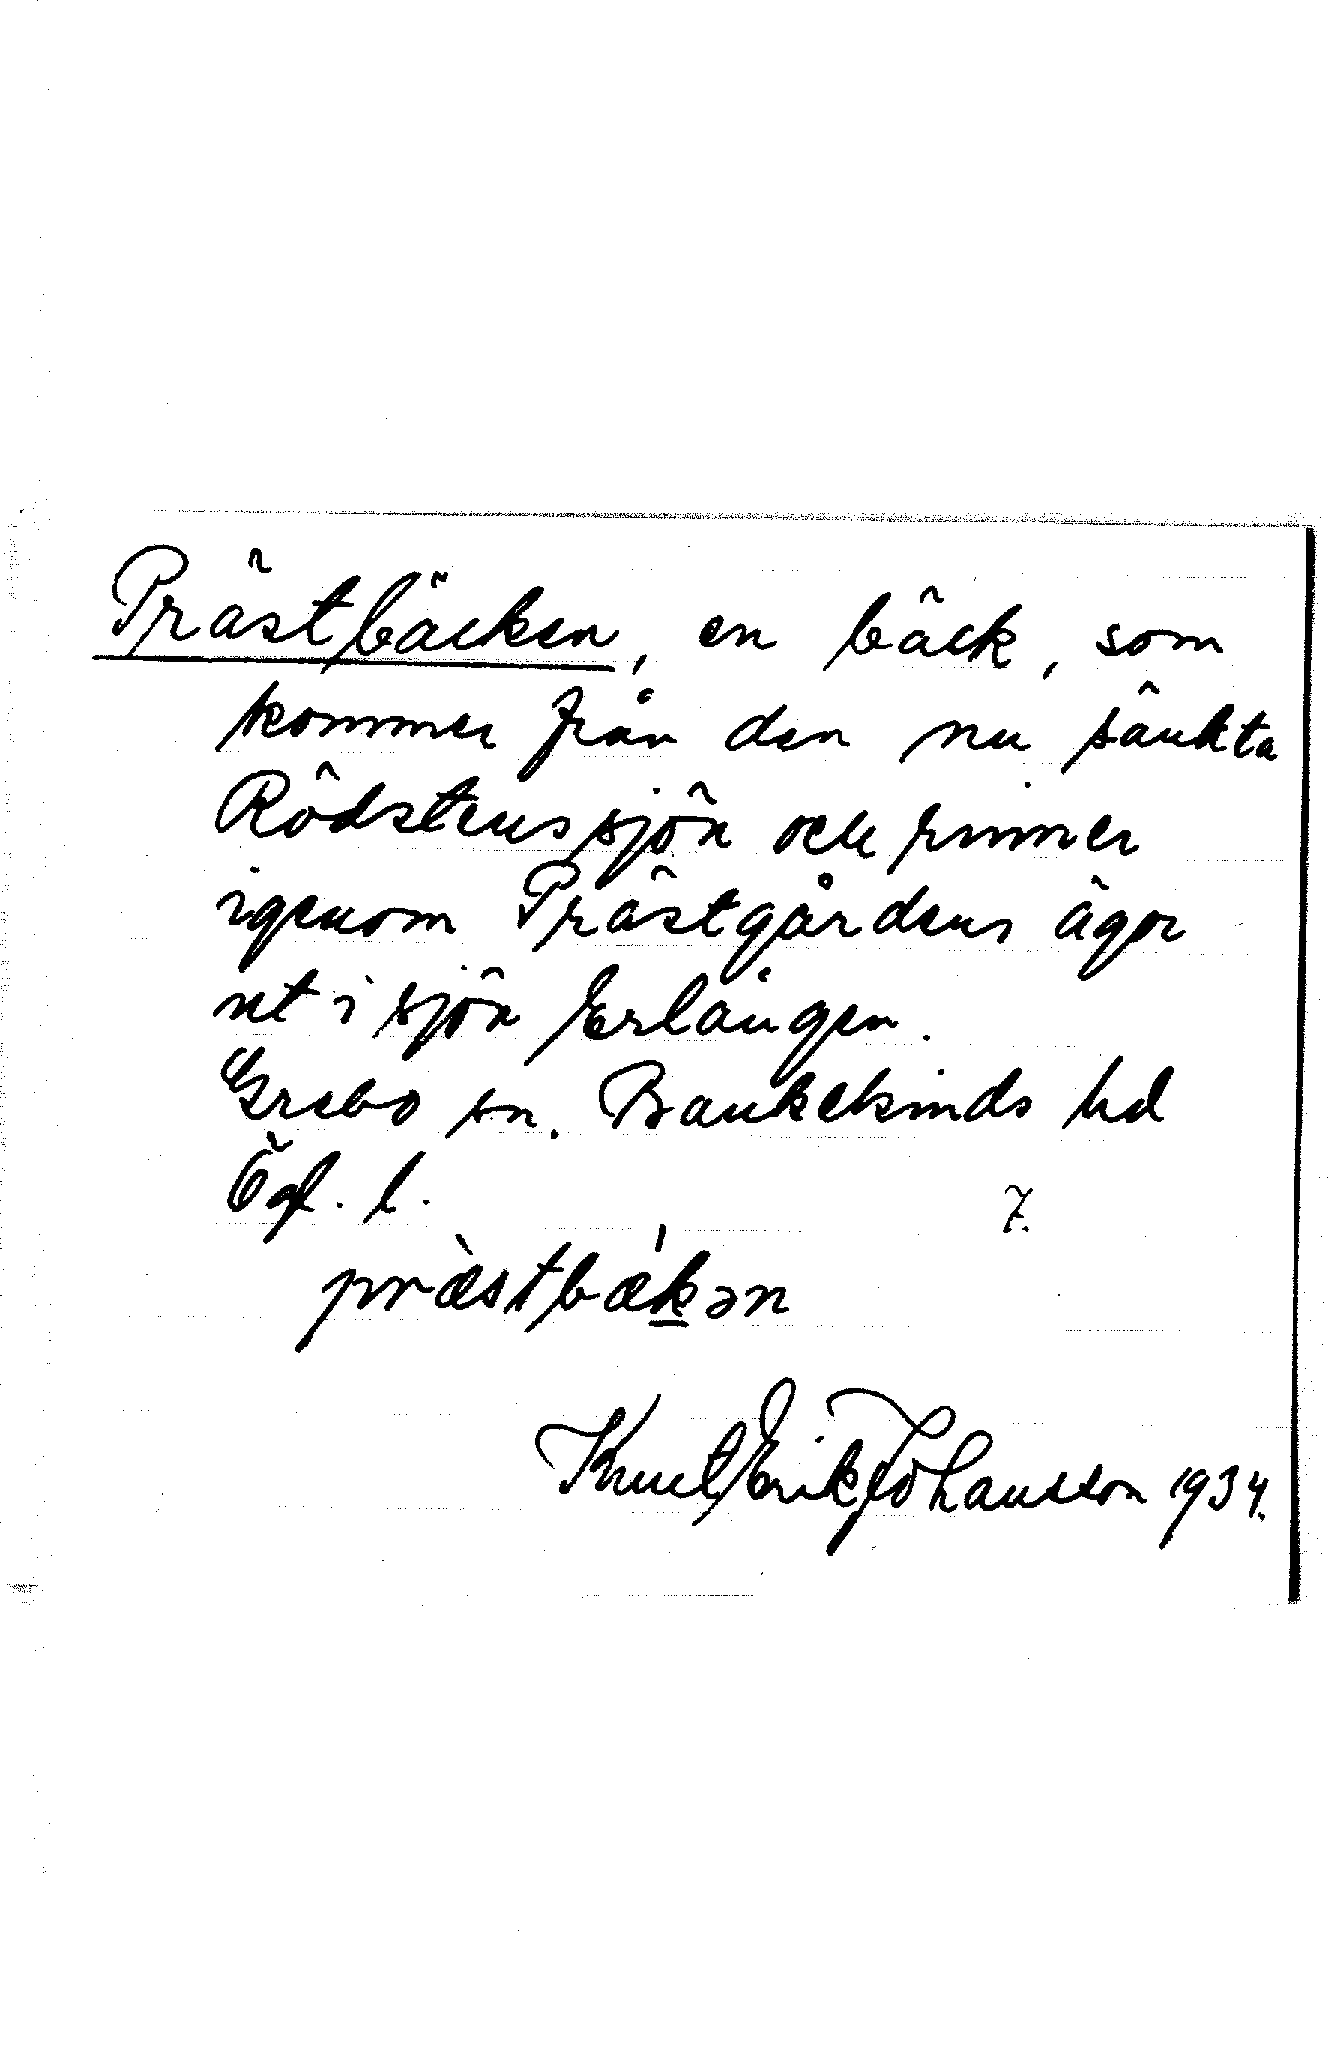 Prästbäcken, en bäck, som
kommer från den nu sänkta
Rödstenssjön och rinner
igenom Prästgårdens ägor
ut i sjön Erlången.
Grebo sn. Bankekinds hd
Ögl. l.
7.
præ̀stbæḱən
Knut Erik Johansson 1934.